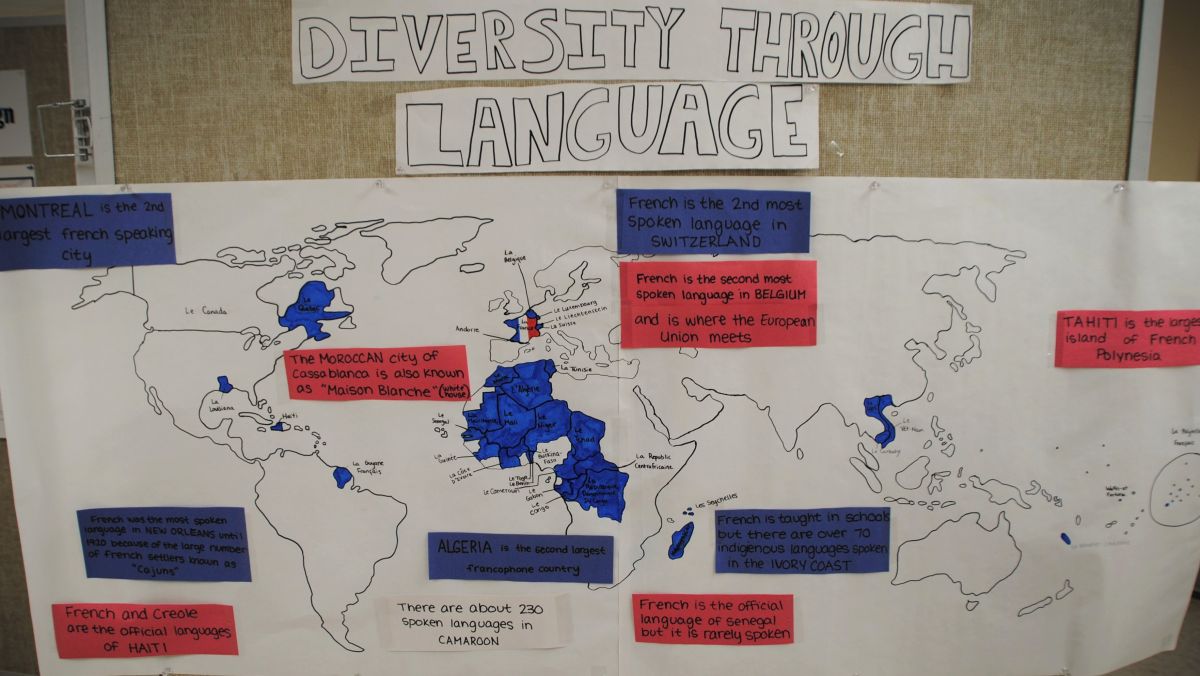 DIVERSITY THROUGH
LANGUAGE
MONTREAL is the 2nd
largest french speaking
city
French is the 2nd most
spoken language in
SWITZERLAND
French is the second most
spoken language in BELGIUM
and is where the European
Union meets
TAHITI is the larges
island of French
Polynesia
The MOROCCAN city of
Cassablanca is also known
as "Maison Blanche" (white house)
La Belgique
Le Luxembourg
Le Liechtenstein
La Suisse
La France
Andorre
Le Canada
Le Québec
La Louisiana
Haiti
La Guyane
Français
La Tunisie
L'Algérie
La Mauritanie
Le Mali
Le Niger
Le Tchad
Le Sénégal
La Guinée
La Côte
D'Ivoire
Le Burkina-
Faso
Le Togo
Le Benin
Le Cameroun
Le Gabon
Le Congo
La Republic
Centrafricaine
La République
Démocratique
Du Congo
Les Seychelles
Le
Viet-Nam
Wallis-et
Futuna
French was the most spoken
language in NEW ORLEANS until
1920 because of the large number
of french settlers known as
"Cajuns"
ALGERIA is the second largest
francophone country
French is taught in schools
but there are over 70
indigenous languages spoken
in the IVORY COAST
French and Creole
are the official languages
of HAITI
There are about 230
spoken languages in
CAMAROON
French is the official
language of Senegal
but it is rarely spoken